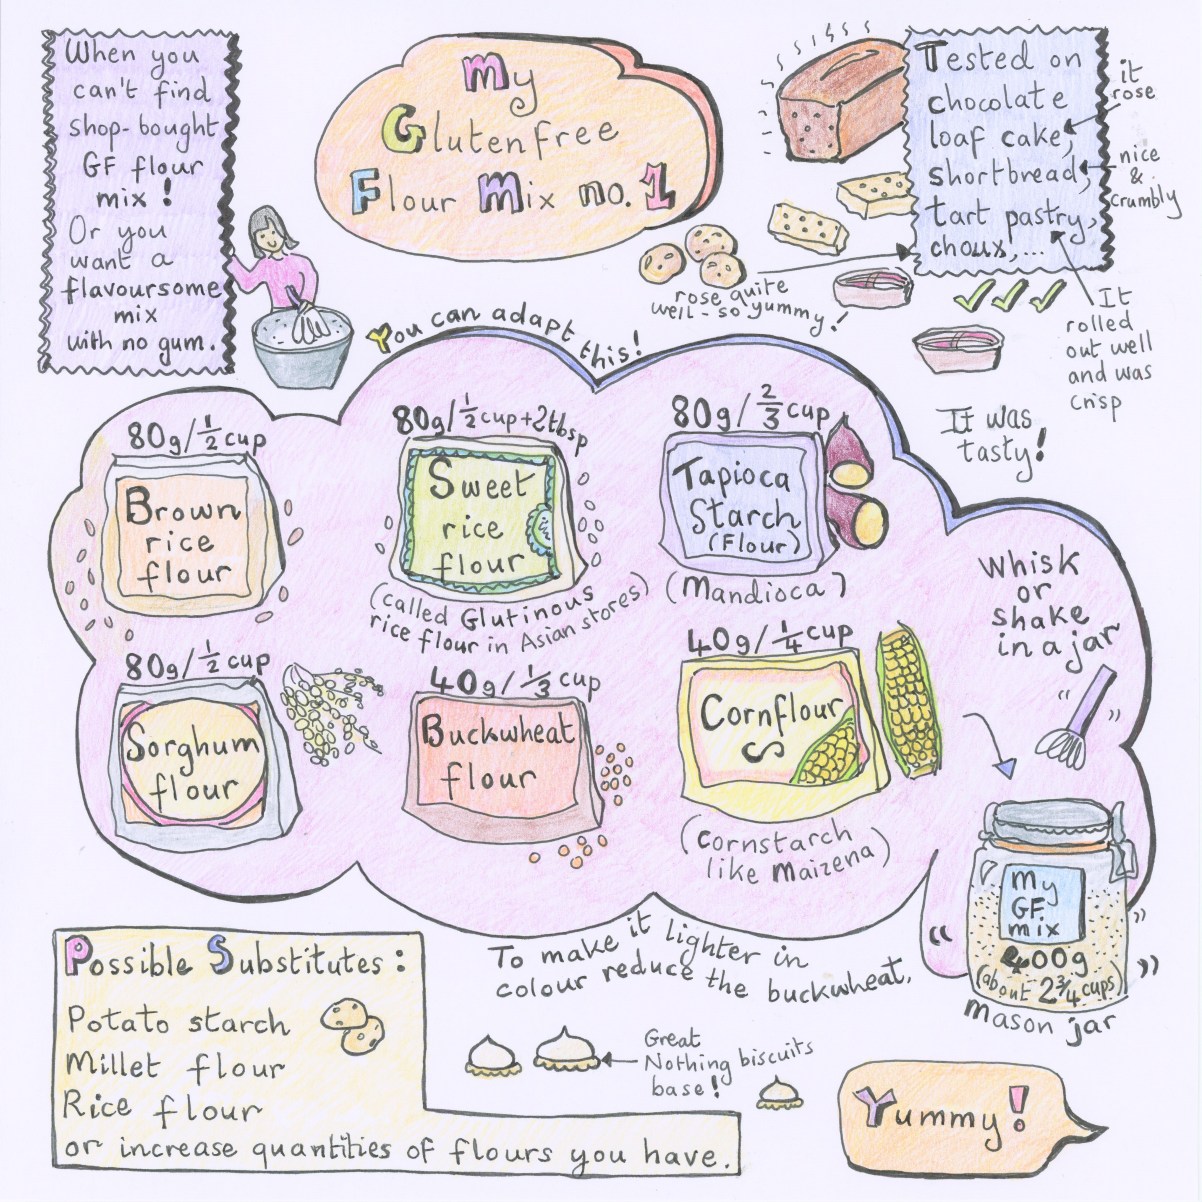 When you
can't find
shop-bought
GF flour
mix!
Or you
want a
flavoursome
mix
with no gum.
My
Glutenfree
Flour Mix no. 1
Tested on
chocolate
loaf cake,
shortbread,
tart pastry,
choux,...
it
rose
nice
&
crumbly
rose quite
well - so yummy!
It
rolled
out well
and was
crisp
It was
tasty!
You can adapt this!
80g/½ cup
Brown
rice
flour
80g/½ cup+2tbsp
Sweet
rice
flour
(called Glutinous
rice flour in Asian stores)
80g/⅔ cup
Tapioca
Starch
(Flour)
(Mandioca)
80g/½ cup
Sorghum
flour
40g/⅓ cup
Buckwheat
flour
40g/¼ cup
Cornflour
(Cornstarch
like Maizena)
Whisk
or
shake
in a jar
My
GF
mix
400g
(about 2¾ cups)
Mason jar
To make it lighter in
colour reduce the buckwheat.
Possible Substitutes:
Potato starch
Millet flour
Rice flour
or increase quantities of flours you have.
Great
Nothing biscuits
base!
Yummy!